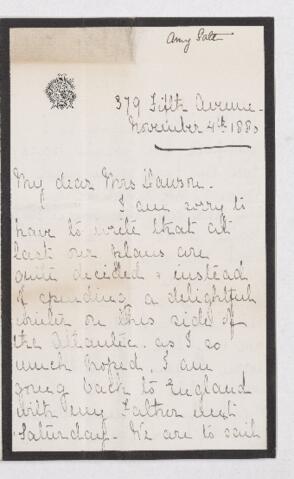 Amy Galt
379 Fifth Avenue.
November 4th 1880
My dear Mrs Lawson.
I am sorry to
have to write that at
last our plans are
quite decided & instead
of spending a delightful
winter on this side of
the Atlantic, as I so
much hoped, I am
going back to England
with my Father next
Saturday. We are to sail